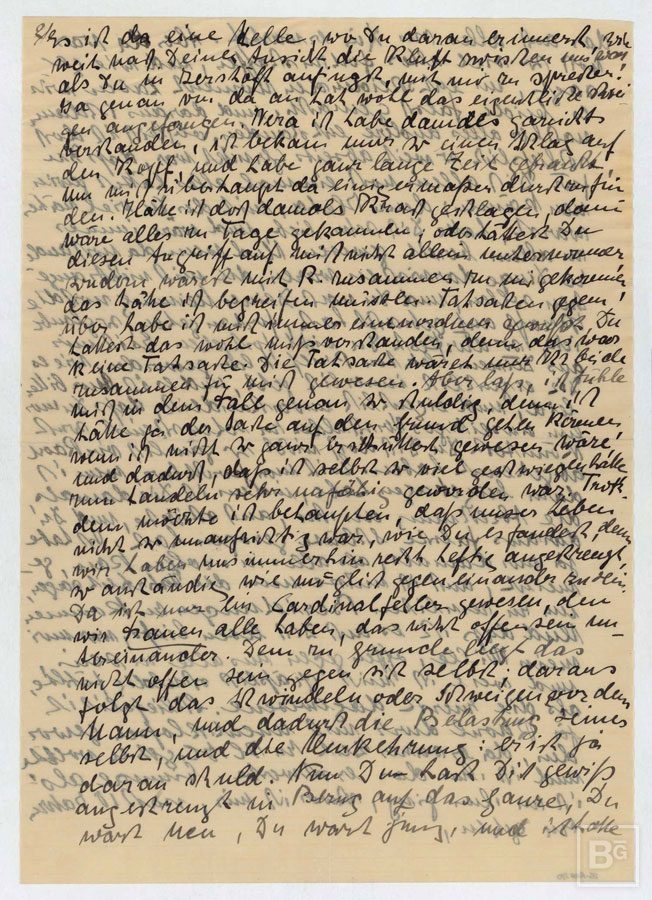 Es ist da eine Stelle, wo Du daran erinnerst, wie
weit nach Deiner Ansicht die Kluft zwischen uns war
als Du in anfingst, mit mir zu sprechen!
Ja genau von da an hat wohl das eigentliche Schwei-
gen angefangen. Vera ich habe damals garnichts
verstanden, ich bekam nur so einen Schlag auf
den Kopf, und habe ganz lange Zeit gebraucht,
um mich überhaupt da einigermaßen durchzufin-
den. Hätte ich doch damals Krach geschlagen, dann
wäre alles zu Tage gekommen, oder hättest Du
diesen Angriff auf mich nicht allein unternommen,
sondern wärest mit R. zusammen zu mir gekommen,
das hätte ich begreifen müssen. Tatsachen gegen-
über habe ich mich immer einzuordnen gewußt, Du
hattest das wohl missverstanden, denn das war
keine Tatsache. Die Tatsache wäret nur Ihr beide
zusammen für mich gewesen. Aber lass, ich fühle
mich in dem Fall genau so schuldig, denn ich
hätte ja der Sache auf den Grund gehen können
wenn ich nicht so ganz erschüttert gewesen wäre,
und dadurch, daß ich selbst so viel geschwiegen hätte
zum Handeln schon unfähig geworden war. Trotz-
dem möchte ich behaupten, daß unser Leben
nicht so unaufrichtig war, wie Du es fandest, denn
wir haben uns immerhin recht heftig angestrengt,
so anständig wie möglich gegen einander zu sein.
Da ist nur ein Cardinalfehler gewesen, den
wir Frauen alle haben, das nicht offen sein un-
tereinander. Dem zu grunde liegt das
nicht offen sein gegen sich selbst; daraus
folgt das Schwindeln oder Schweigen vor dem
Mann, und dadurch die Belastung seines
selbst, und die Umkehrung: er ist ja
daran schuld. Nun Du hast Dich gewiß
angestrengt in Bezug auf das Ganze, Du
warst neu, Du warst jung, und ich hatte
BG